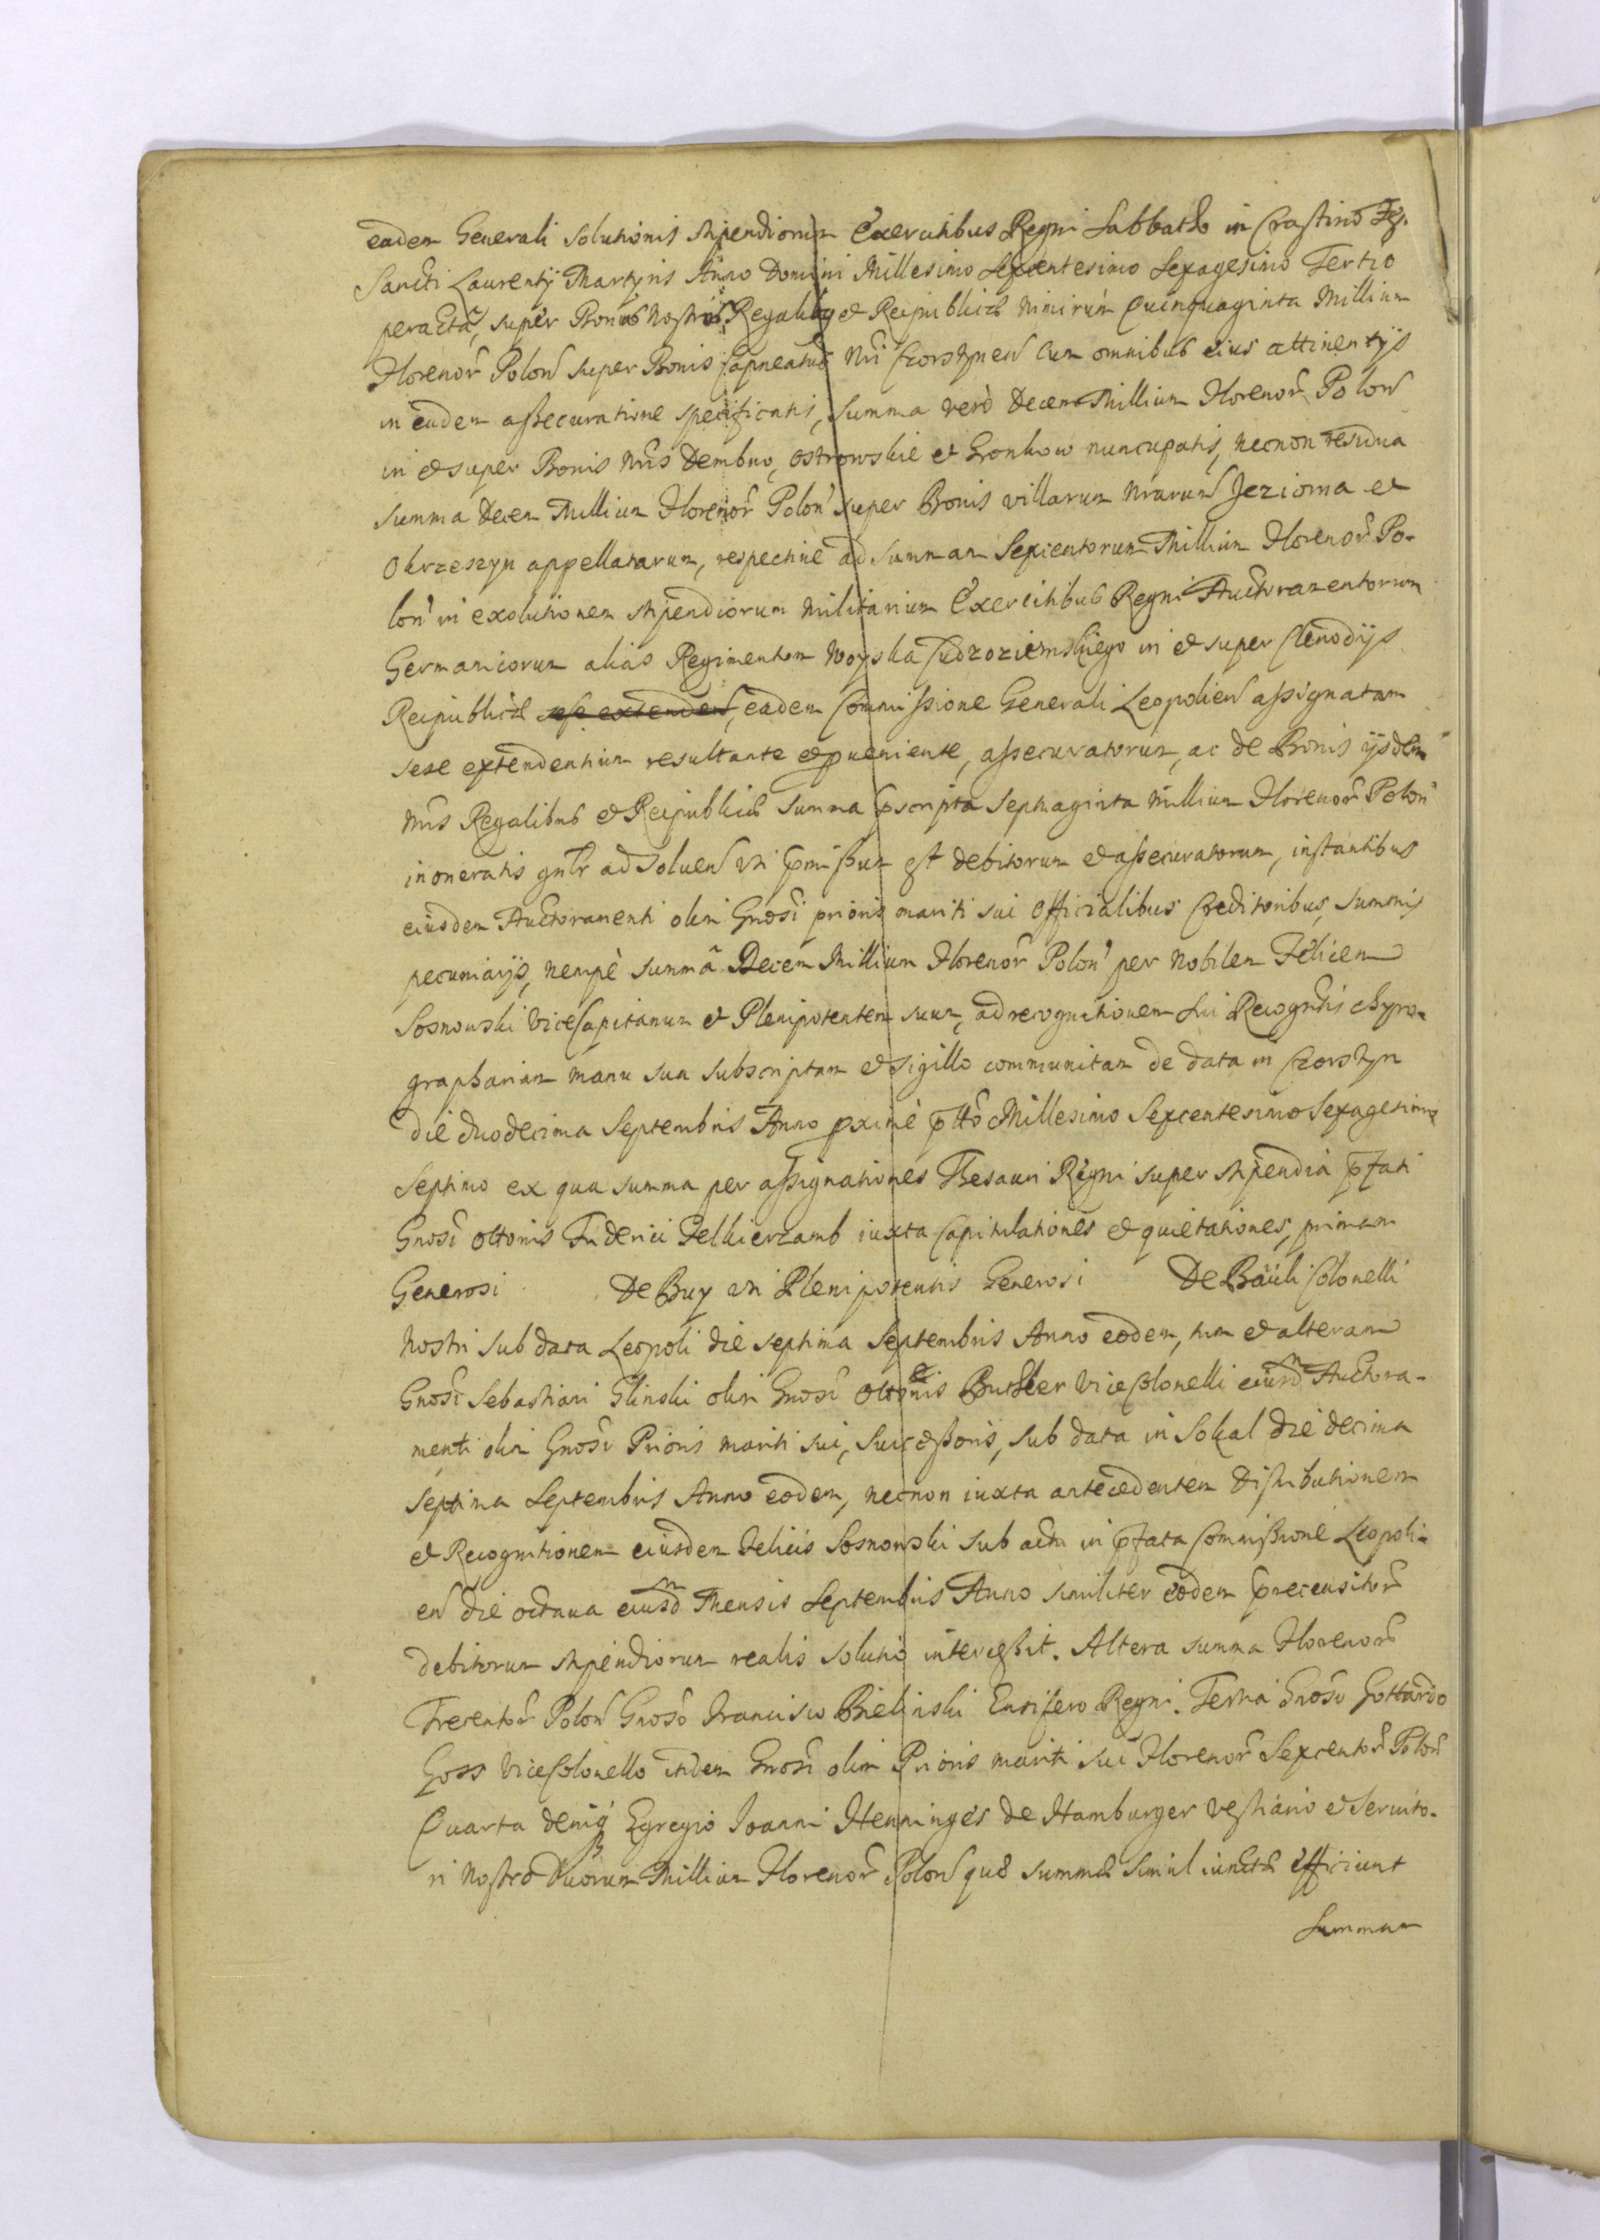 eadem Generali solutionis stipendiorum Exercitibus Regni Sabbatho in Crastino Fes.
Sancti Laurentij Martyris Anno Domini Millesimo Sexcentesimo Sexagesimo Tertio
peracta, super Bonis Nostris Regalibus et Reipublicæ nimirum Quinquaginta Millium
Florenor Polon super Bonis Capneatus Nri Czorstynen cum omnibus eius attinentijs
in eadem assecuratione specificatis, summa verò Decem Millium Florenor Polon
in et super Bonis Nris Dembno, Ostrowskie et Gronkow nuncupatis, necnon residua
summa Decem Millium Florenor Polon super Bonis villarum Nrarum Jezioma et
Okrzeszyn appellatarum, respective ad summam Sexcentorum Millium Florenor Po-
lon in exolutionem stipendiorum militarium Exercitibus Regni Auctoramentorum
Germanicorum alias Regimentom Woyska Cudzoziemskiego in et super Clenodijs
Reipublicæ sese extenden, eadem Commissione Generali Leopolien assignatam
sese extendentium resultante et pueniente, assecuratorum, ac de Bonis ijsdem
Nris Regalibus et Reipublicæ summa pscripta septuaginta Millium Florenor Polon
inoneratis gnlr ad soluen uti pmissum est debitorum et assecuratorum, instantibus
eiusdem Auctoramenti olim Gnosi prioris mariti sui Officialibus Creditoribus, summis
pecuniarijs, nempè summa Decem Millium Florenor Polon per Nobilem Felicem
Sosnowski ViceCapitaneum et Plenipotentem suum, ad recognitionem sui Recogntis chyro-
graphariam manu sua subscriptam et sigillo communitam de data in Czorsztyn
die duodecima Septembris Anno pximè ptto Millesimo Sexcentesimo Sexagesimo
Septimo ex qua summa per assignationes Thesauri Regni super stipendia pfati
Gnosi Ottonis Friderici Felkierzamb iuxta Capitulationes et quietationes, primam
Generosi De Buy uti Plenipotentis Generosi De Bauli Colonelli
Nostri sub data Leopoli die septima Septembris Anno eodem, tum et alteram
Gnosi Sebastiani Glinski olim Gnosi Ottonis Butler ViceColonelli eiusd Auctora-
menti olim Gnosi Prioris mariti sui, successoris, sub data in Sokal die decima
septima Septembris Anno eodem, necnon iuxta antecedentem distributionem
et Recognitionem eiusdem Felicis Sosnowski sub actu in pfata Commissione Leopoli-
en die octava eiusd Mensis Septembris Anno similiter eodem precensitor
debitorum stipendiorum realis solutio intercessit. Altera summa Florenor
Trecentor Polon Gnoso Francisco Bielinski Ensifero Regni. Tertia Gnoso Gottardo
Goss ViceColonello itidem Gnosi olim Prioris mariti sui Florenor Sexcentor Polon
Quarta deniq Egregio Joanni Henninges de Hamburger vestiario et servito-
ri Nostro Duorum Millium Florenor Polon quæ summæ simul iunctæ efficiunt
Summam